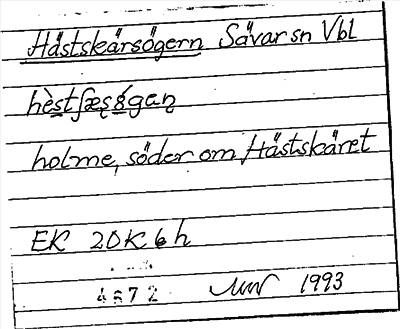 Hästskärsögern Sävar sn Vbl
hè̱stʃæʂö́gaɳ
holme, söder om Hästskäret
EK 20K 6 h
4672 1993